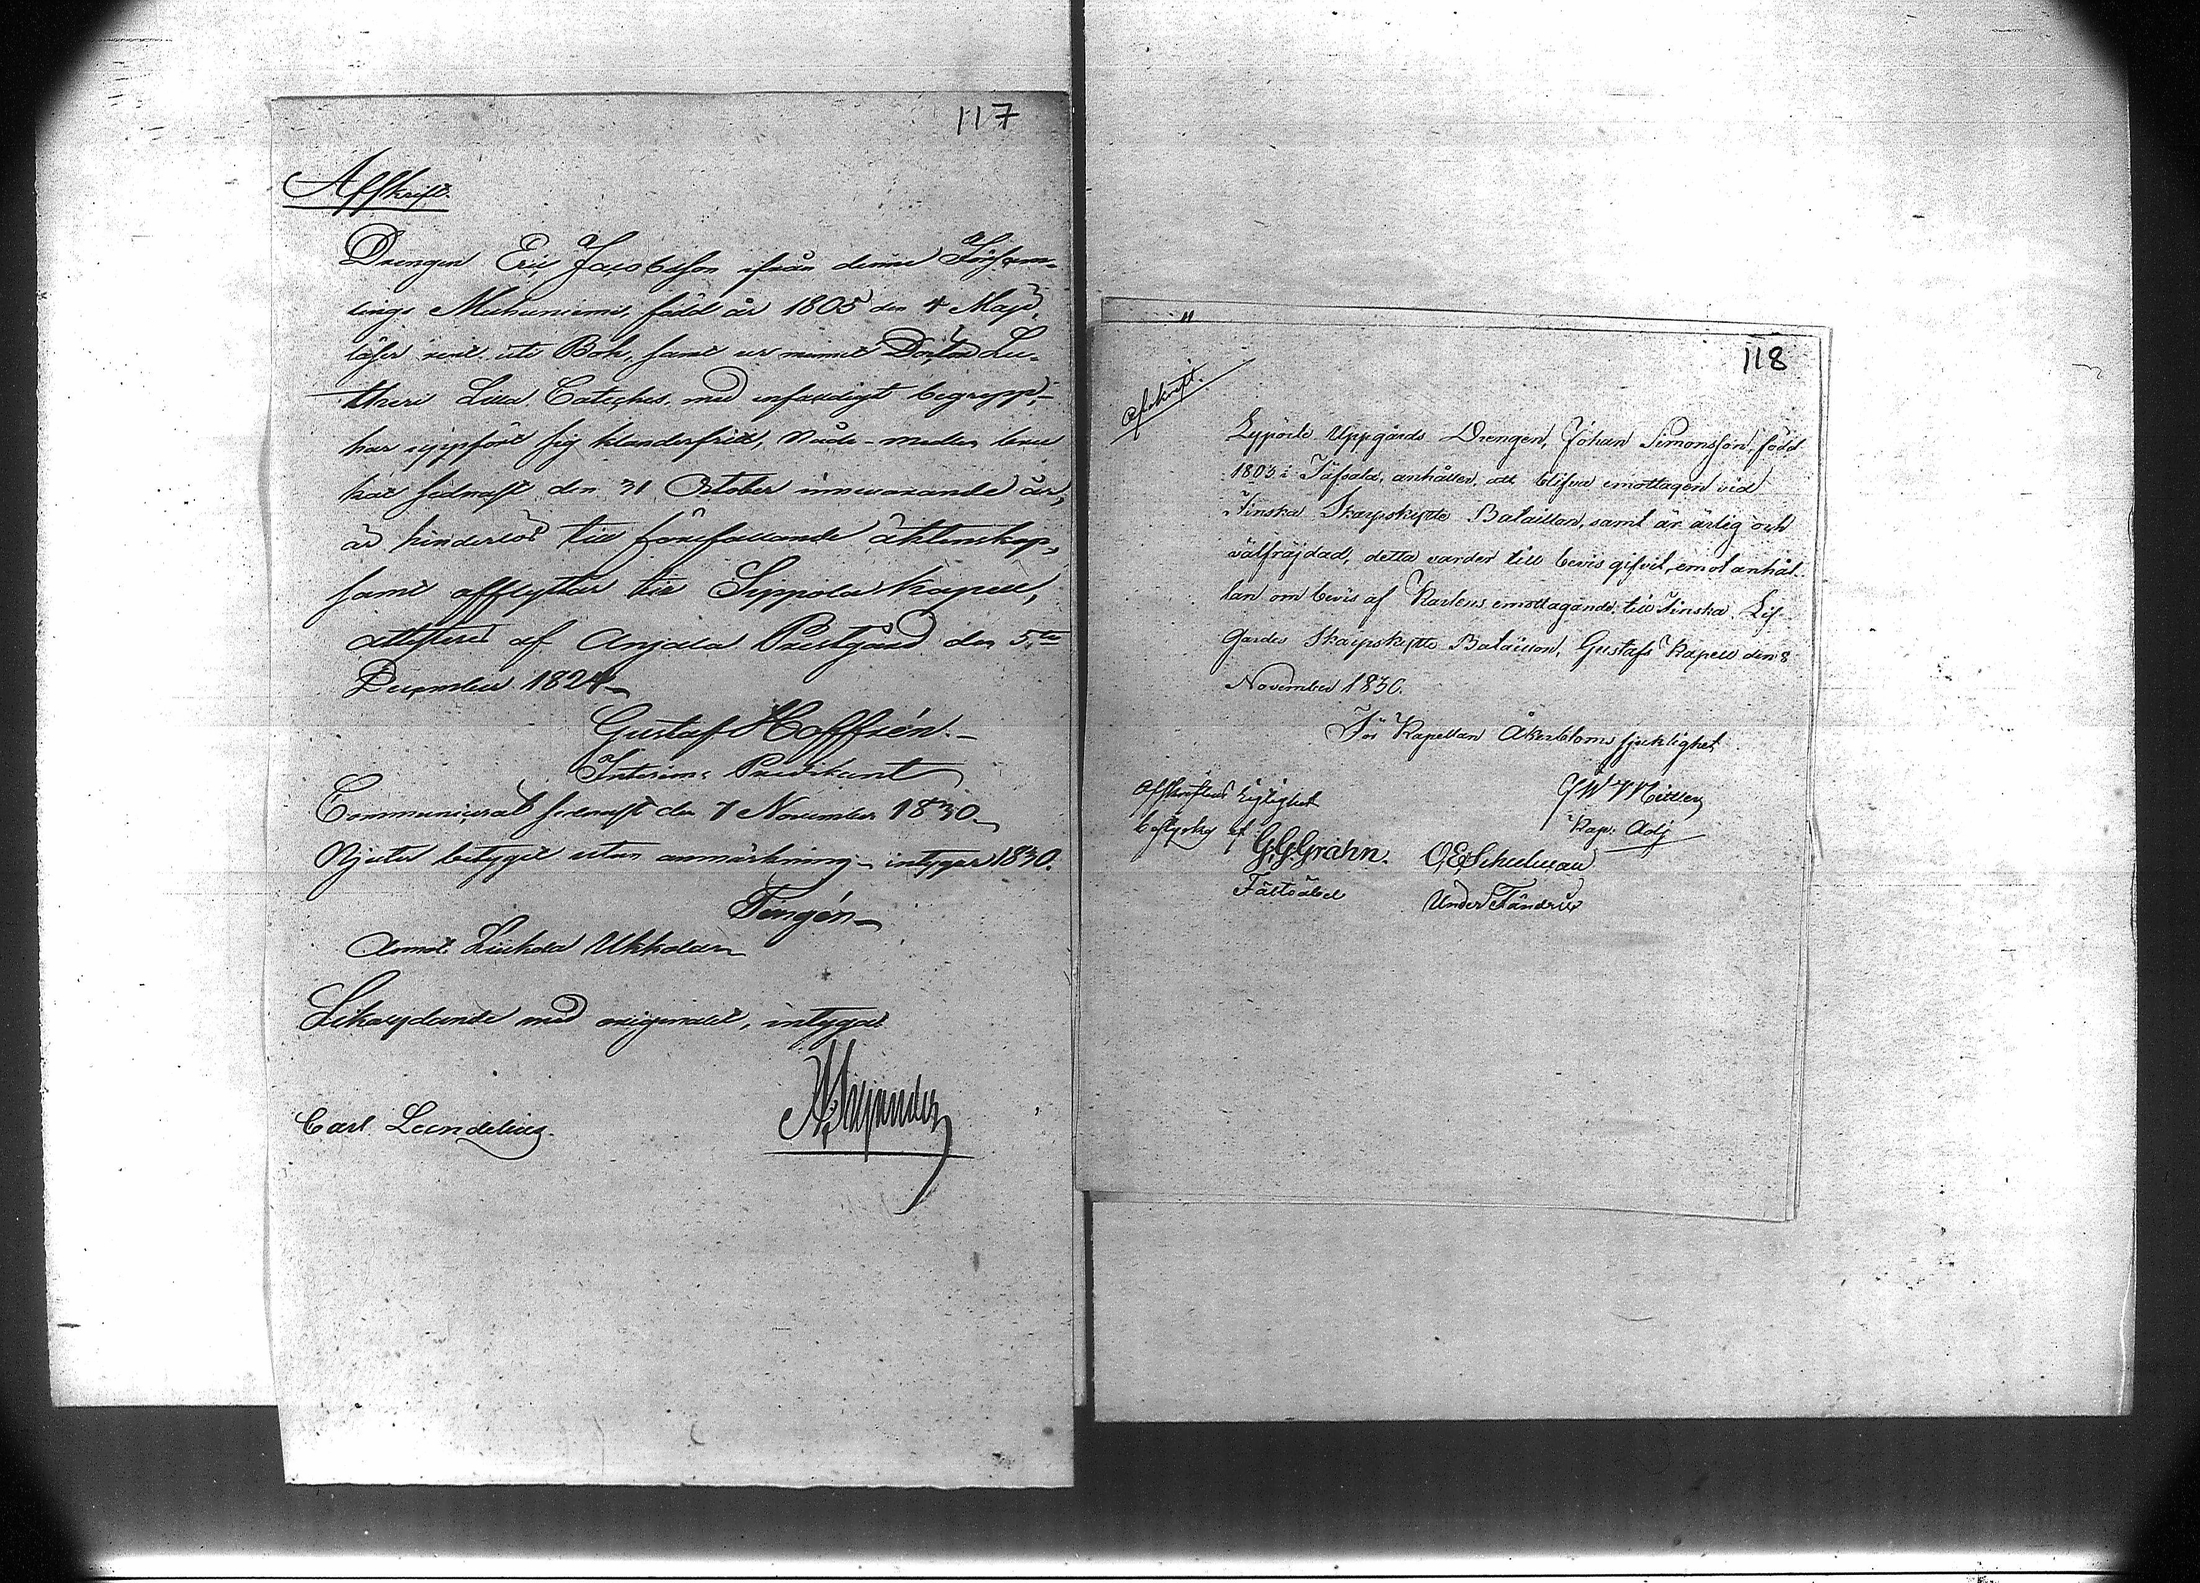 117
Afskrift.
Drengen Eric Jacobsson ifrån denne Församlings
Muhuniemi, född år 1805 den 4 Maji,
läser rent uti Bok, samt ur minnet Doctor Lu-
theri Lilla Cateches, med enfaldigt begrepp,
har uppfört sig klanderfritt, Nåde-medlen brukat
sednast den 31 October innevarande år,
är hinderlös till förefallande äktenskap,
samt afflyttar till Sippola Kapell,
attesteras af Anjala Prestgård den 5te
December 1824
Gustaf Hoffrén.
Interims Predikant
Communicerat sednast den 7 November 1830
Njuter betyget utan anmärkning intygar 1830.
Tengén
Annot. Liikala Ukkola
Likalydande med originalet, intygar
Carl Lundelius.
118
Afskrift.
Lypörtö Uppgårds Drengen, Johan Simonsson, född
1803 i Töfsala, anhåller att blifva emottagen vid
Finska Skarpskytte Bataillon, samt är ärlig och
välfräjdad, detta varder till bevis gifvit, emot anhål-
lan om bevis af Karlens emottagande till Finska Lif-
Gardes Skarpskytte Bataillon, Gustafs Kapell den 8
November 1830.
För Kapellan Åkerbloms sjuklighet
Kap. Adj
Afskriftens riktighet
bestyrka af
G.G. Grahn.
Fältväbel
O.E. Schulman
Under Fändrik